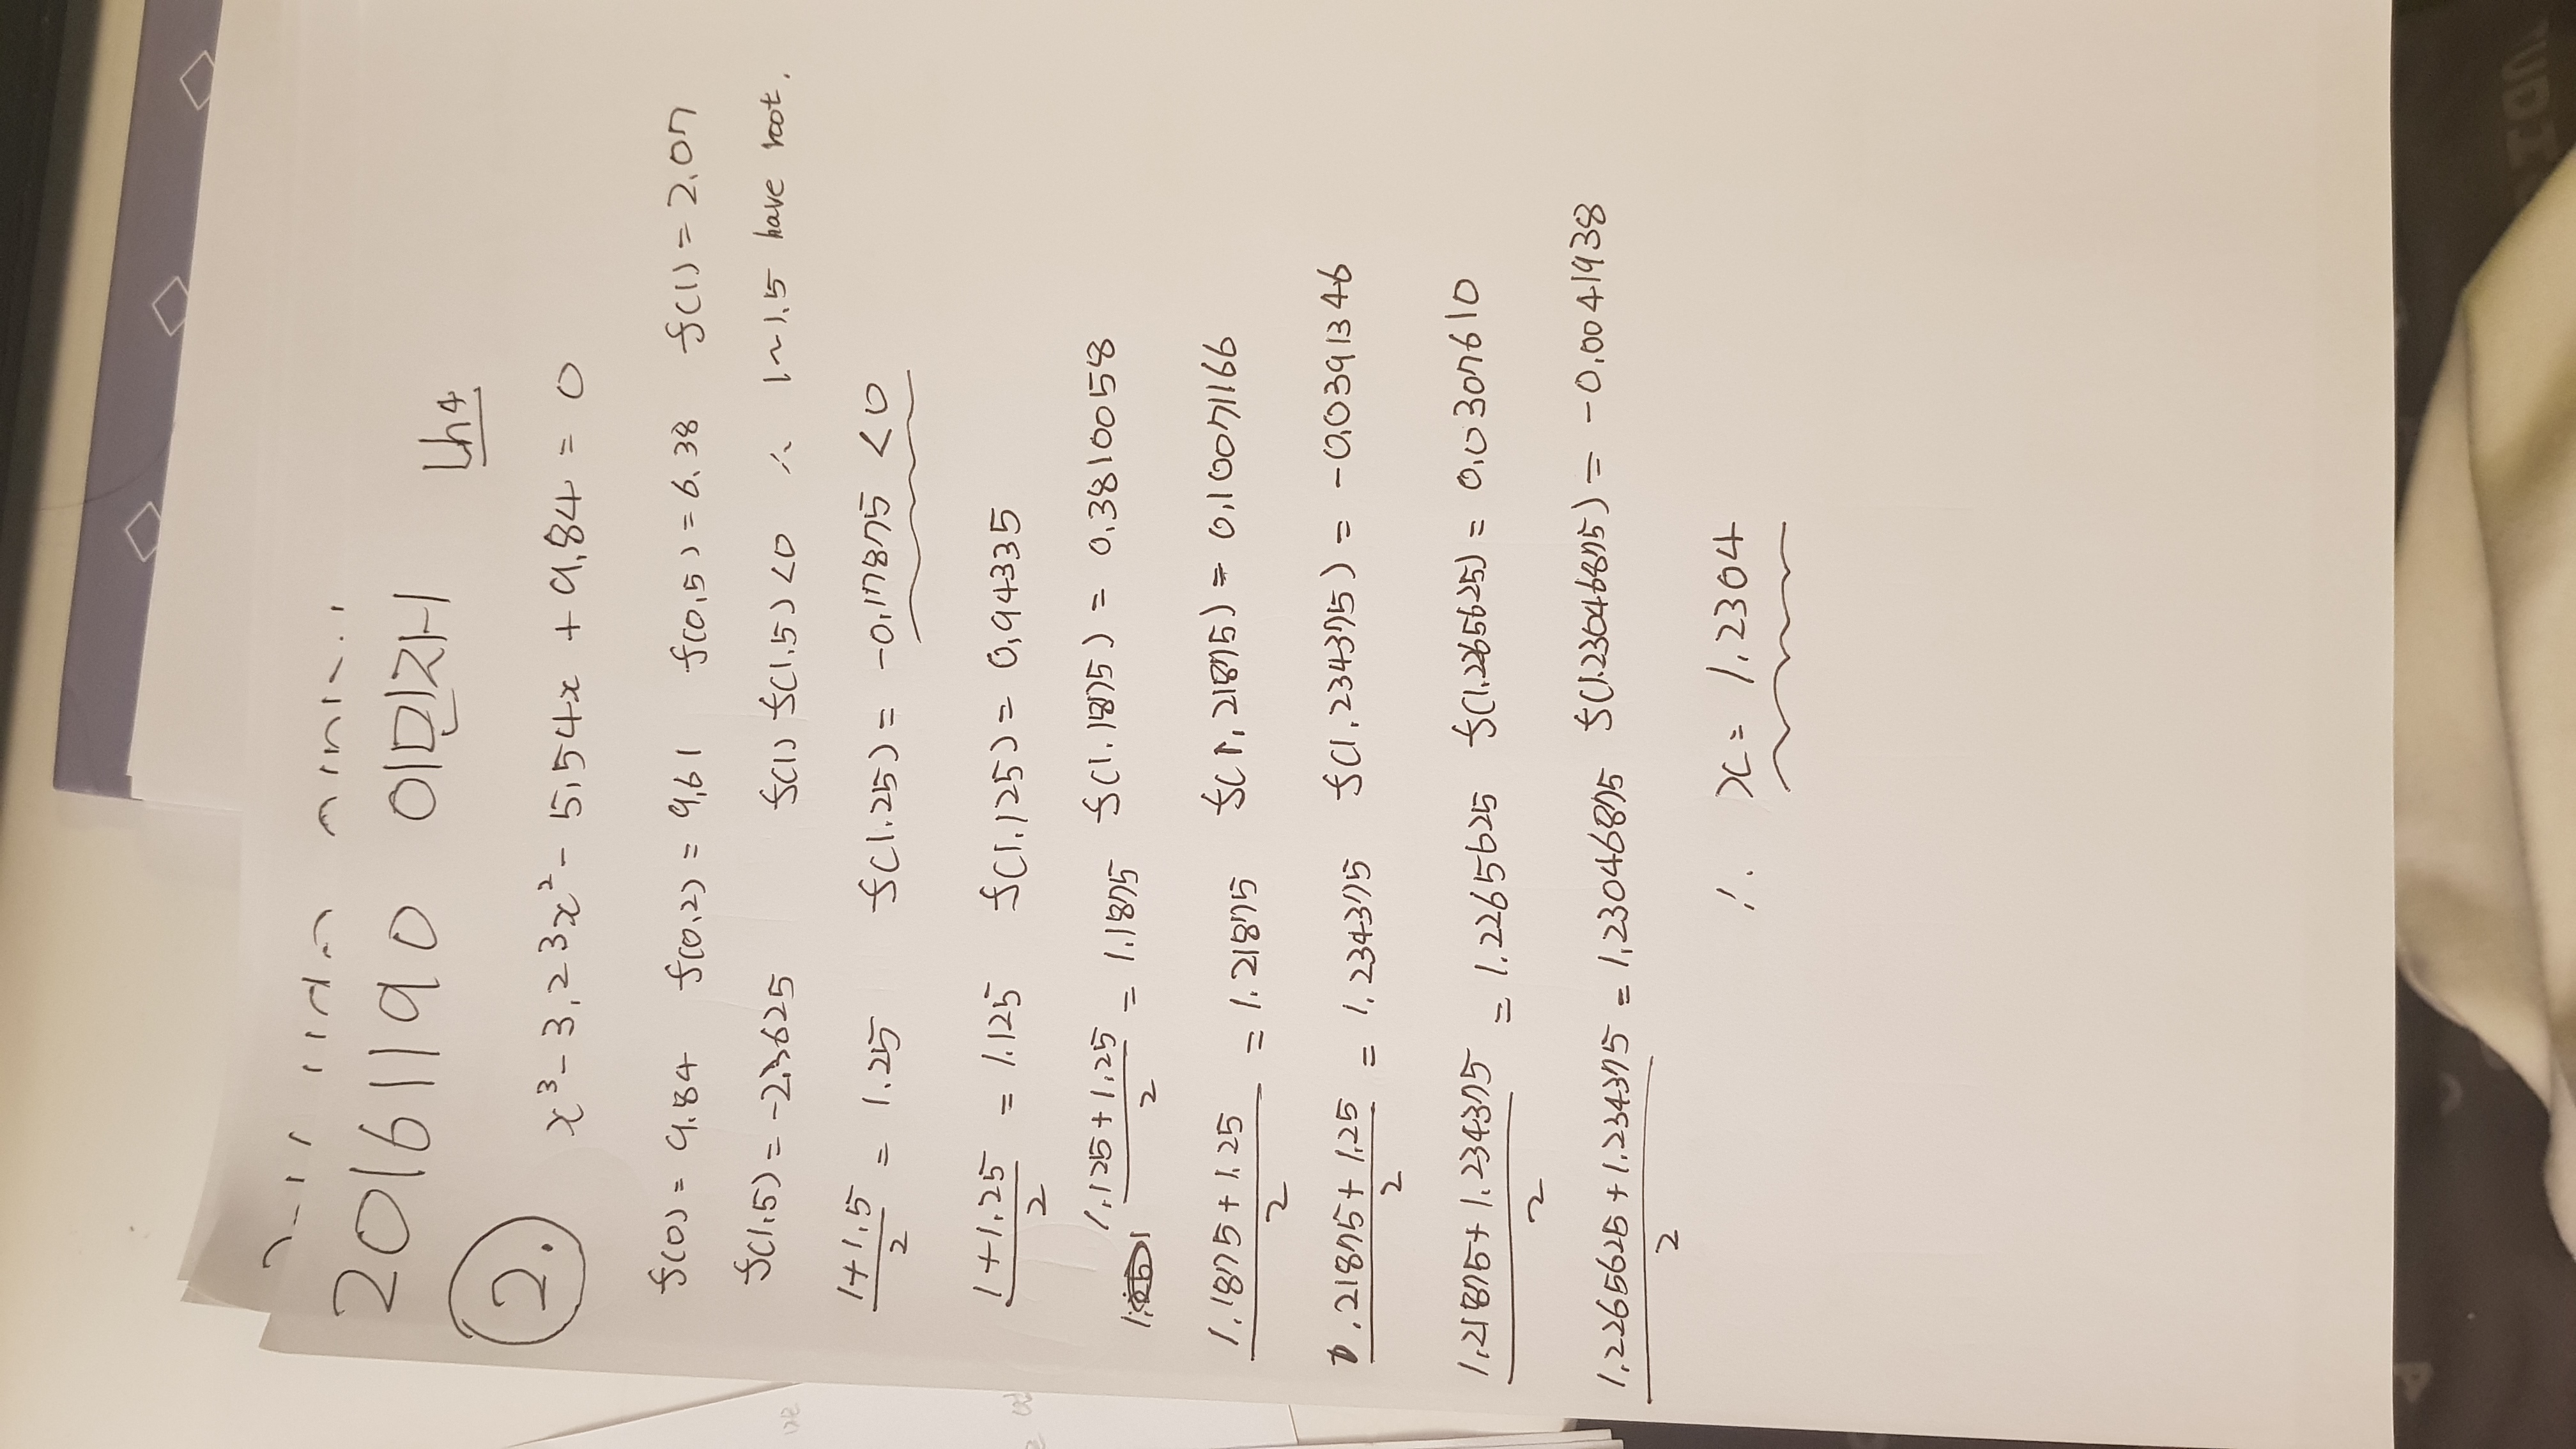 20161190 이민재 Ch4
2. x³ - 3.23x² - 5.54x + 9.84 = 0
f(0) = 9.84 f(0.2) = 9.61 f(0.5) = 6.38 f(1) = 2.07
f(1.5) = -2.3625 f(1) f(1.5) < 0 ∴ 1~1.5 have root.
(1+1.5)/2 = 1.25 f(1.25) = -0.17875 < 0
(1+1.25)/2 = 1.125 f(1.125) = 0.94335
(1.125+1.25)/2 = 1.1875 f(1.1875) = 0.3810058
(1.1875+1.25)/2 = 1.21875 f(1.21875) = 0.10071166
(1.21875+1.25)/2 = 1.234375 f(1.234375) = -0.0391346
(1.21875+1.234375)/2 = 1.2265625 f(1.2265625) = 0.0307610
(1.2265625+1.234375)/2 = 1.23046875 f(1.23046875) = -0.0041938
∴ x = 1.2304